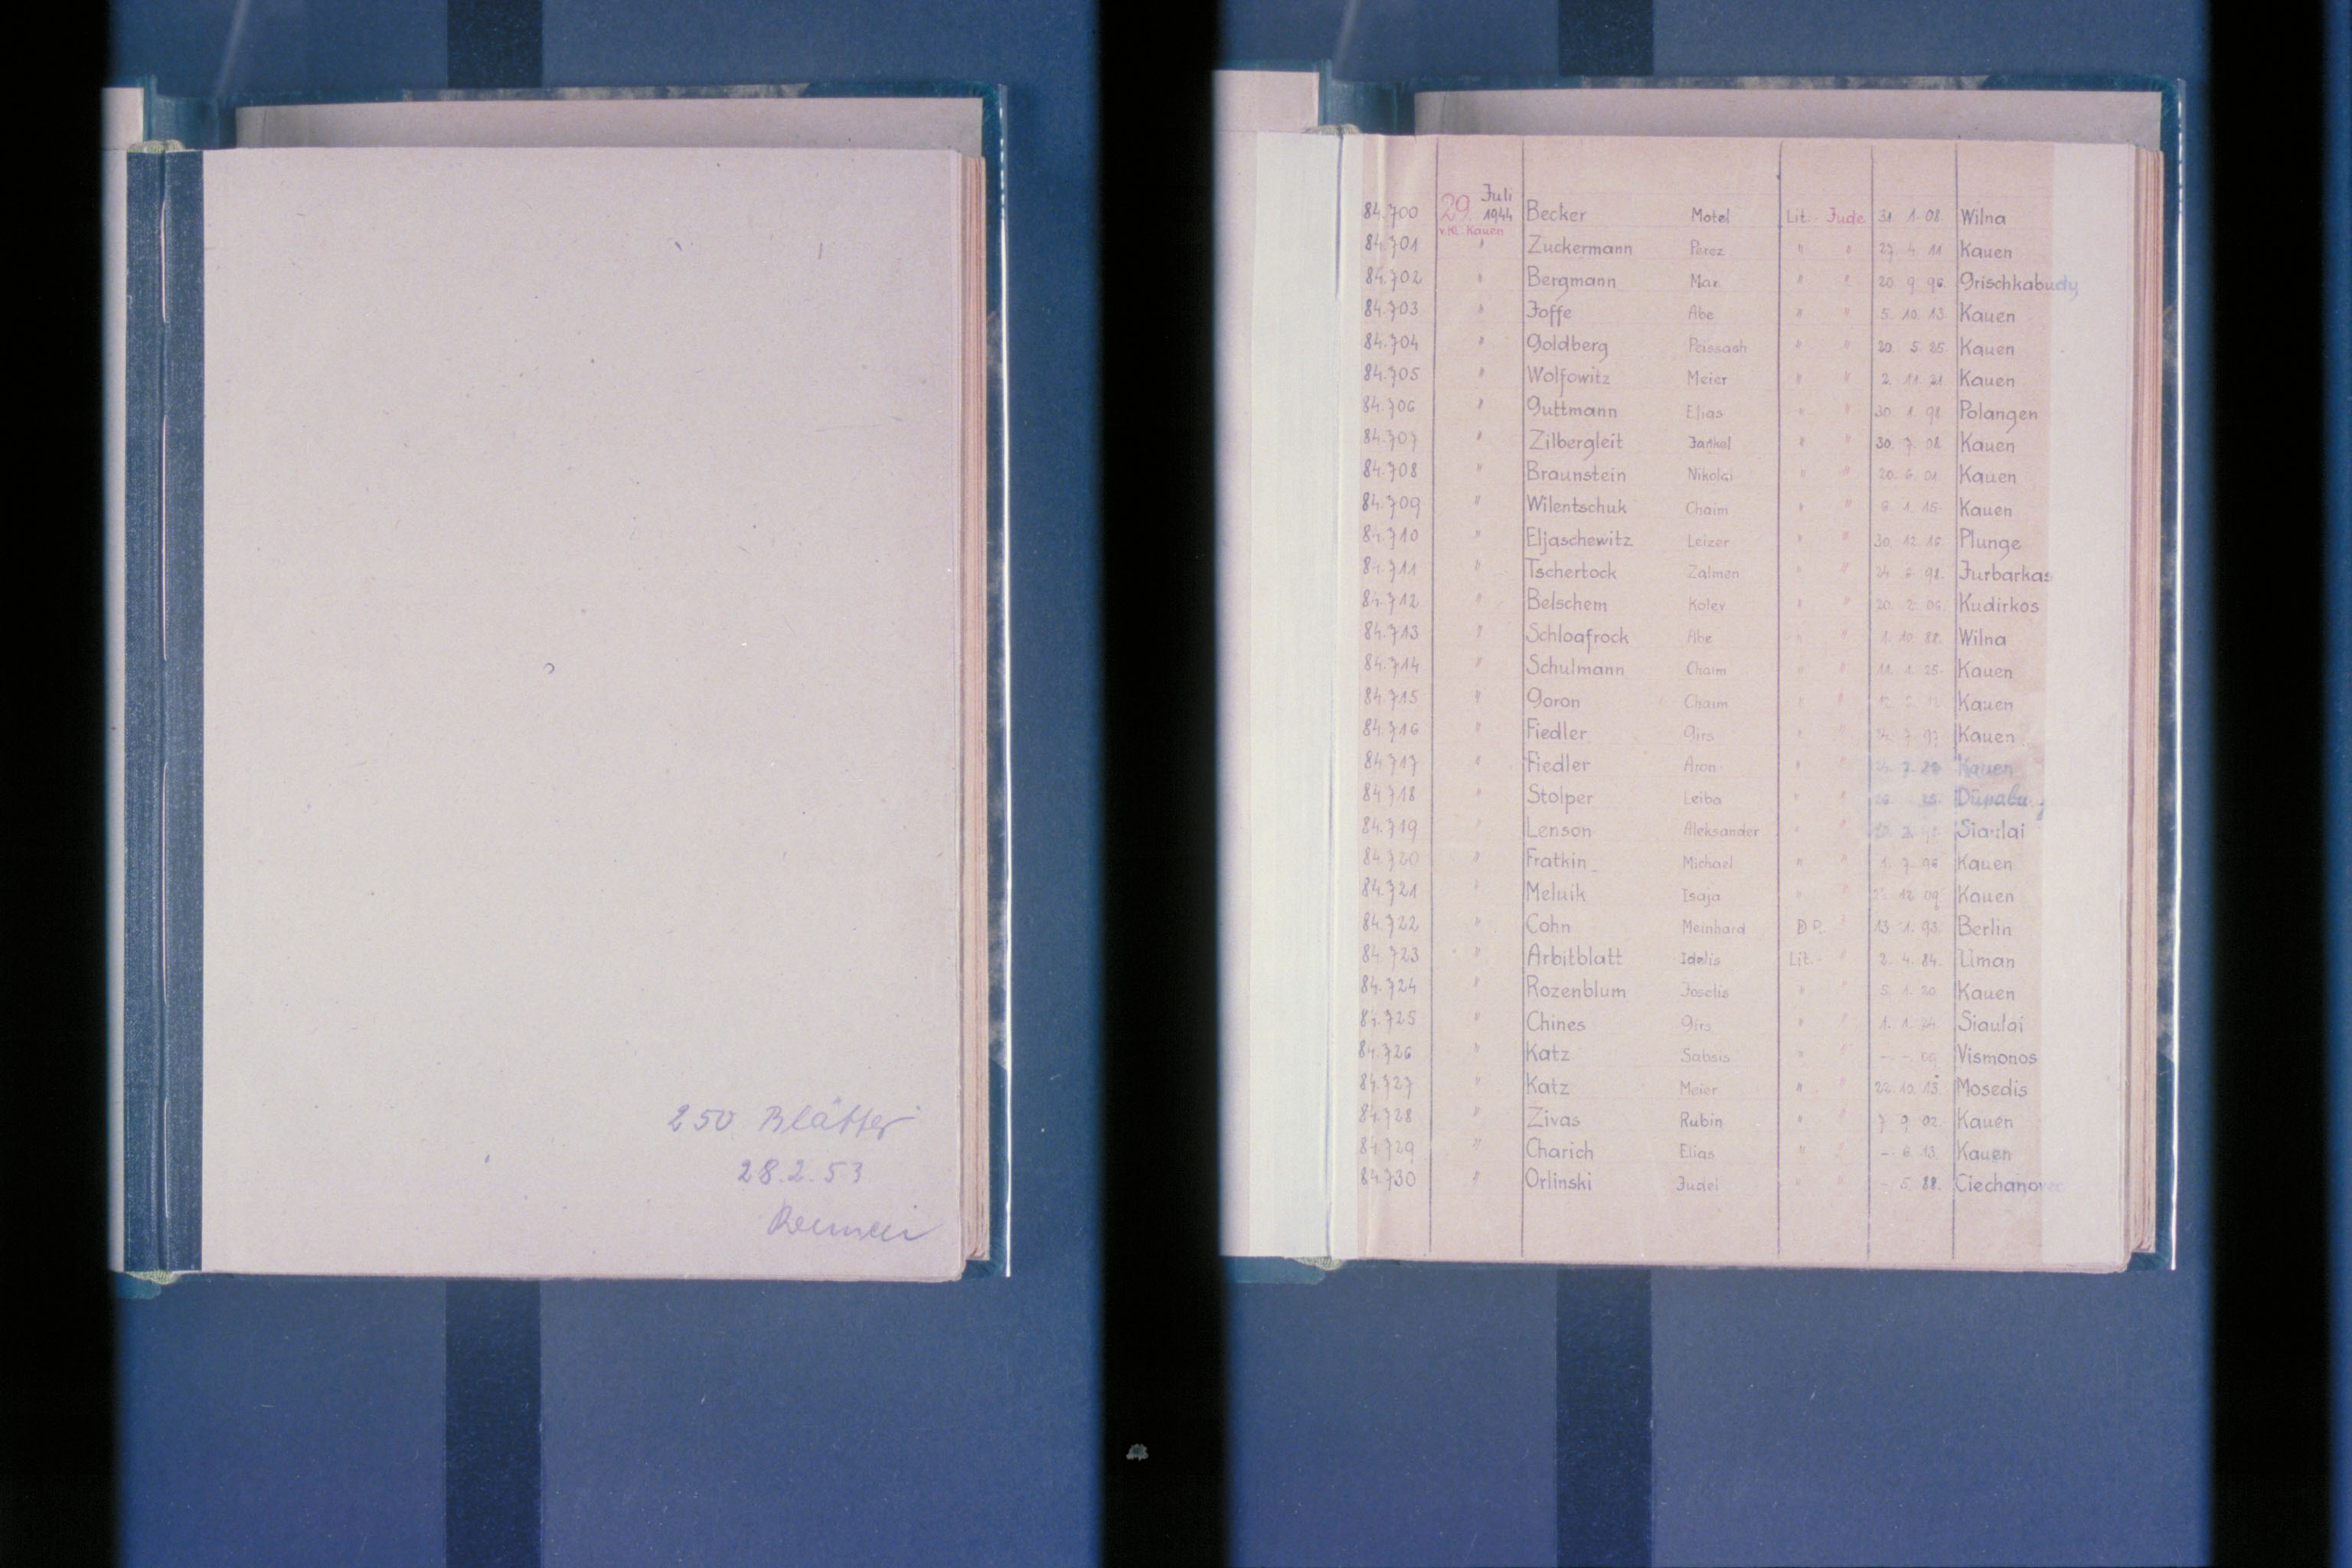 250 Blätter
28.2.53
84.700 29. Juli 1944 Becker Motel Lit.- Jude 31 1. 08. Wilna
v. Kl. Kauen
84.701 " Zuckermann Perez " " 27. 4. 11 Kauen
84.702 " Bergmann Max " " 20. 9. 96. Grischkabudy
84.703 " Joffe Abe " " 5. 10. 13 Kauen
84.704 " Goldberg Peissach " " 20. 5. 25 Kauen
84.705 " Wolfowitz Meier " " 2. 11. 21 Kauen
84.706 " Guttmann Elias " " 30. 1. 98 Polangen
84.707 " Zilbergleit Jankel " " 30. 7. 08. Kauen
84.708 " Braunstein Nikolai " " 20. 6. 01. Kauen
84.709 " Wilentschuk Chaim " " 6. 1. 15. Kauen
84.710 " Eljaschewitz Leizer " " 30. 12. 16 Plunge
84.711 " Tschertock Zalmen " " 24. 6. 98. Jurbarkas
84.712 " Belschem Kolev " " 20. 2. 06 Kudirkos
84.713 " Schloafrock Abe " " 1. 10. 88. Wilna
84.714 " Schulmann Chaim " " 11. 1. 25. Kauen
84.715 " Goron Chaim " " Kauen
84.716 " Fiedler Girs " " 24. 7. 97 Kauen
84.717 " Fiedler Aron " " Kauen
84.718 " Stolper Leiba " " 25.
84.719 " Lenson Aleksander " " Siaulai
84.720 " Fratkin Michael " " 1. 7. 96 Kauen
84.721 " Meluik Isaja " " 12 09 Kauen
84.722 " Cohn Meinhard D.P. " 13. 1. 93. Berlin
84.723 " Arbitblatt Idelis Lit.- " 2. 4. 84. Liman
84.724 " Rozenblum Joselis " " 5. 1. 20 Kauen
84.725 " Chines Girs " " 1. 1. 34 Siaulai
84.726 " Katz Sabsis " " - -. 09 Vismonos
84.727 " Katz Meier " " 22. 10. 13. Mosedis
84.728 " Zivas Rubin " " 7 9. 02. Kauen
84.729 " Charich Elias " " - 6. 13. Kauen
84.730 " Orlinski Judel " " - 5. 88. Ciechanovec